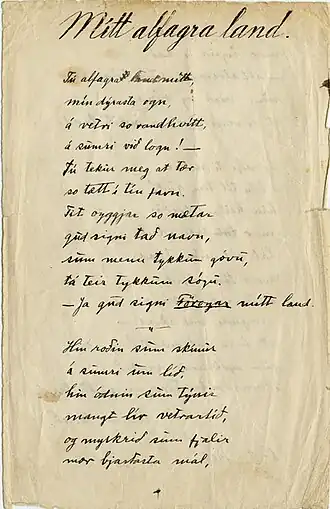 Mítt alfagra land.
Tú alfagra land mítt
mín dýrasta ogn,
á vetri so randhvítt,
á sumri við logn! —
Tú tekur meg at tær
so tætt í tín favn.
Tit oyggjar so mætar
gud signi tað navn,
sum menn tykkum góvu,
tá teir tykkum sógu.
— Ja gud signi Föroyar mítt land.
— " —
Hin roðin sum skínur
á sumri um líð,
hin ódnin sum týnir
mangt lív vetrartíð,
og myrkrið sum fjalir
mær bjartasta mál,